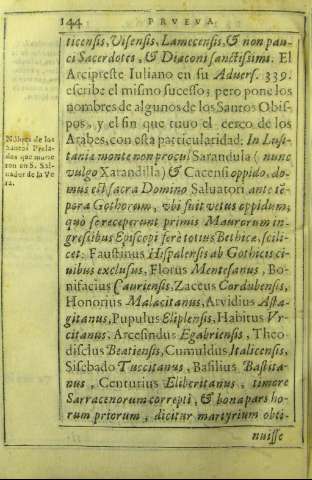 144 PRVEVA
ticensis, Visensis, Lamecensis, & non pau-
ci Sacerdotes, & Diaconi sanctissimi. El
Arcipreste Iuliano en su Advers. 339.
escribe el mismo sucesso; pero pone los
nombres de algunos de los Santos Obis-
pos, y el fin que tuuo el cerco de los
Arabes, con esta particularidad: In Lusi-
tania monte non procul Sarandula (nunc
vulgo Xarandilla) & Cacensi oppido, do-
mus est sacra Domino Salvatori ante tē-
pora Gothorum, vbi fuit vetus oppidum,
quò se receperunt primis Maurorum in-
gressibus Episcopi ferè totius Bethicæ, scili-
cet: Faustinus Hispalensis ab Gothicis ci-
uibus exclusus, Florus Mentesanus, Bo-
nifacius Cauriensis, Zaceus Cordubensis,
Honorius Malacitanus, Arvidius Asta-
gitanus, Pupulus Eliplensis, Habitus Vr-
citanus, Arcesindus Egabriensis, Theo-
disclus Beatiensis, Cumuldus Italicensis,
Sisebado Tuccitanus, Basilius Bastita-
nus, Centurius Eliberitanus, timore
Sarracenorum correpti, & bona pars ho-
rum priorum, dicitur martyrium obti-
nuisse
Nōbres de los
Santos Prela-
dos que murie
ron en S. Sal-
uador de la Ve
ra.